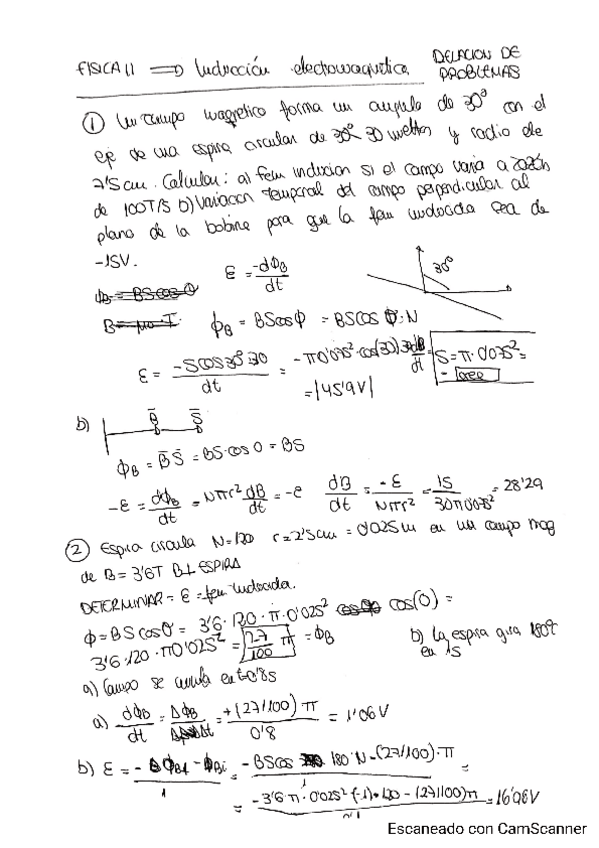 FISICA II ⟹ Inducción electromagnética. RELACION DE PROBLEMAS
① Un campo magnetico forma un angulo de 30º con el
eje de una espira circular de 30 y radio de
7'5 cm. Calcular: a) fem induccion si el campo varia a razón
de 100T/S b) Variacion temporal del campo perpendicular al
plano de la bobina para que la fem inducida sea de
-15V.
ε = -dΦB/dt
30º
ΦB = BScosΦ = BScosΦ·N
S=π·0'075²=
ε = -Scos30º·30/dt = -π0'075²·cos(30)·30 dB/dt
=|45'9V|
b) B̄ S̄
ΦB = B̄S̄ = BS·cos0 = BS
-ε = dΦB/dt = Nπr² dB/dt = -ε dB/dt = -ε/Nπr² = 15/30π0'075² = 28'29
② Espira circula N=120 r=2'5cm = 0'025m en un campo mag
de B=3'6T B⊥ESPIRA
DETERMINAR = ε = fem inducida.
Φ=BScosΦ = 3'6·120·π·0'025² cos(0) =
3'6·120·π0'025² = 27/100 π = ΦB b) la espira gira 180º
en 1S
a) Campo se anula en t=0'8s
a) dΦB/dt = ΔΦB/Δt = +(27/100)·π/0'8 = 1'06V
b) ε = -ΦBf - ΦBi/1 = -BScos 180·N-(27/100)·π =
= -3'6·π·0'025²(-1)·120-(27/100)π = 16'96V
Escaneado con CamScanner